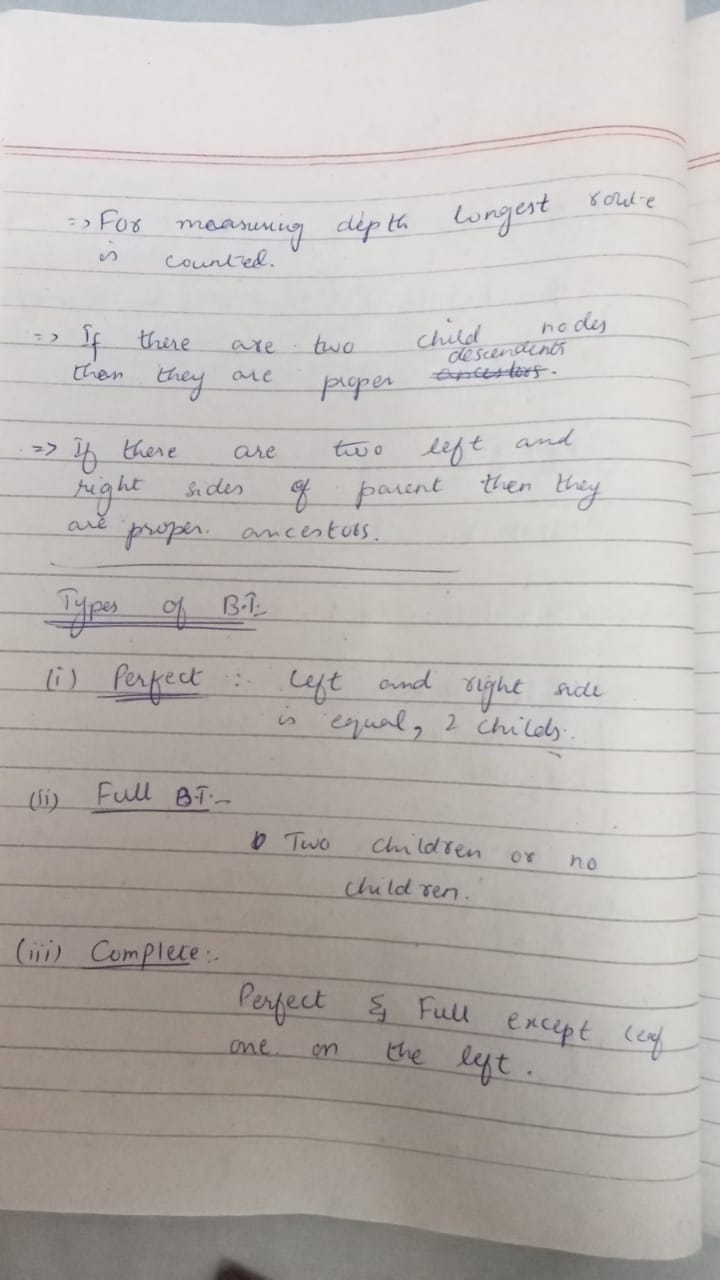 => For measuring depth longest route
is counted.
=> If there are two child nodes
then they are proper ancestors. descendents
=> If there are two left and
right sides of parent then they
are proper. ancestors.
Types of B.T:-
(i) Perfect :. left and right side
is equal, 2 childs.
(ii) Full B.T:-
Two children or no
children.
(iii) Complete:.
Perfect & Full except leaf
one on the left.